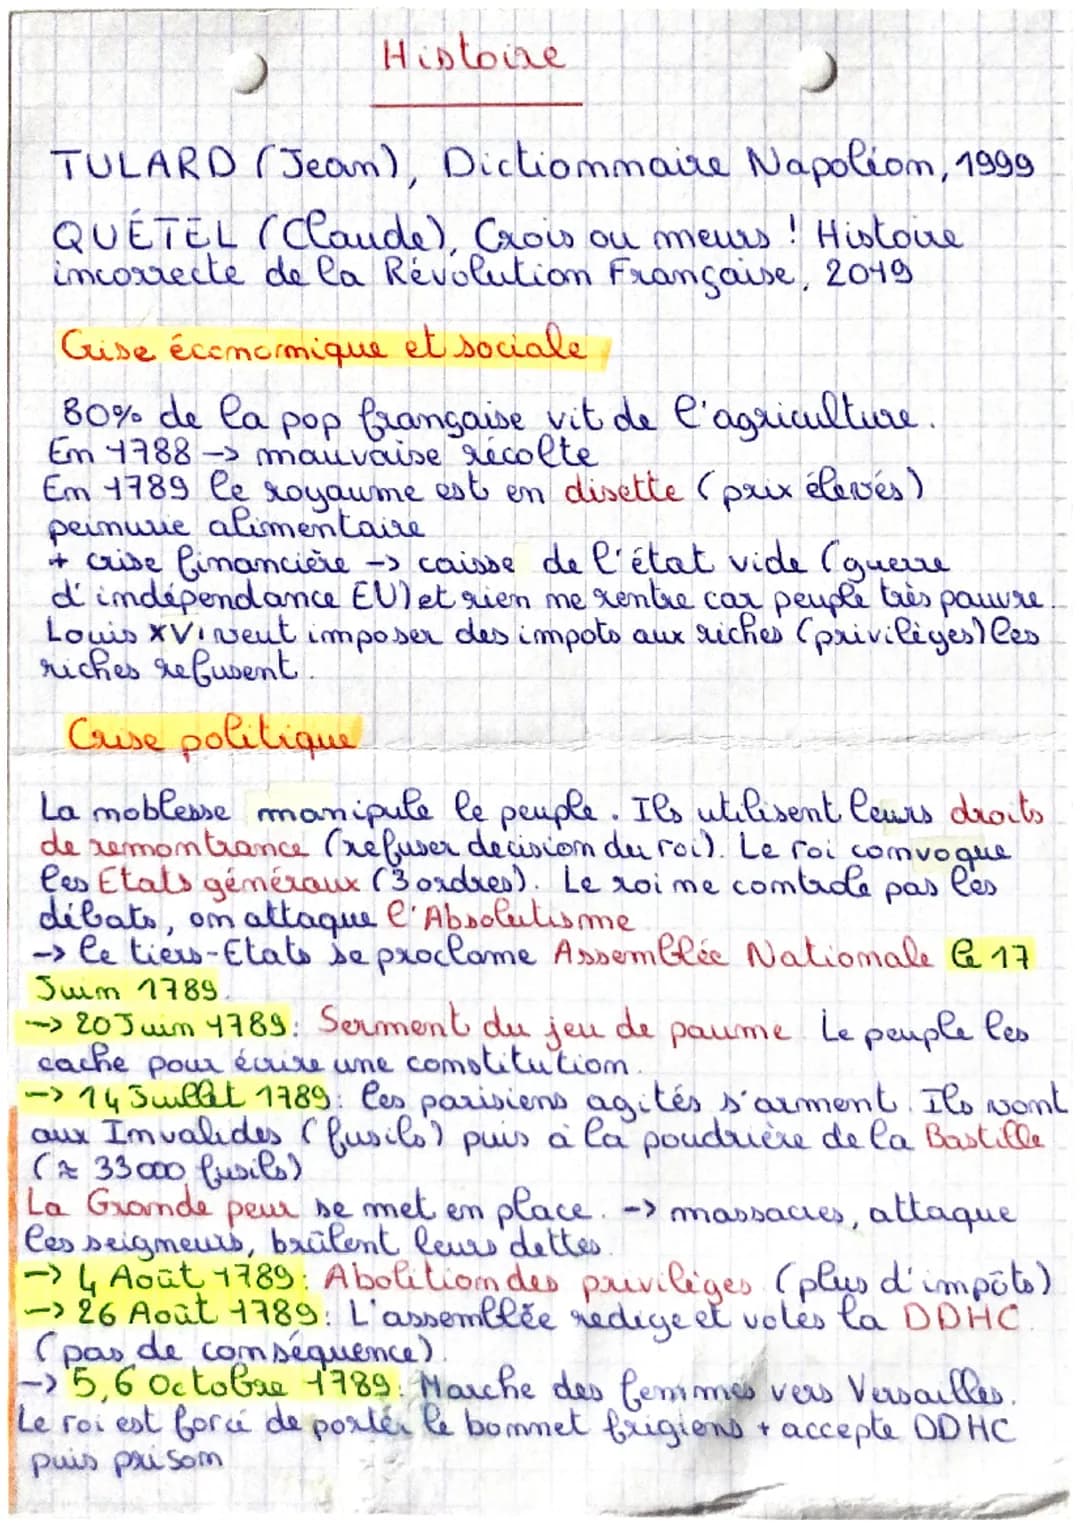 Histoire
TULARD (Jean), Dictionnaire Napoléon, 1999
QUÉTEL (Claude), Crois ou meurs ! Histoire
incorrecte de la Révolution Française, 2019
Crise économique et sociale
80% de la pop française vit de l'agriculture.
En 1788 -> mauvaise récolte
En 1789 le royaume est en disette (prix élevés)
peinurie alimentaire
+ crise financière -> caisse de l'état vide (guerre
d'indépendance EU) et rien ne rentre car peuple très pauvre.
Louis XVI veut imposer des impots aux riches (privilèges) les
riches refusent.
Crise politique
La noblesse manipule le peuple. Ils utilisent leurs droits
de remontrance (refuser decision du roi). Le roi convoque
les Etats généraux (3 ordres). Le roi ne controle pas les
débats, on attaque l'Absolutisme
-> le tiers-Etats se proclame Assemblée Nationale le 17
Juin 1789.
-> 20 Juin 1789: Serment du jeu de paume. Le peuple les
cache pour écrire une constitution.
-> 14 Juillet 1789: les parisiens agités s'arment. Ils vont
aux Invalides (fusils) puis à la poudrière de la Bastille
(≈ 33000 fusils)
La Grande peur se met en place. -> massacres, attaque
les seigneurs, brûlent leurs dettes.
-> 4 Août 1789: Abolition des privilèges (plus d'impôts)
-> 26 Août 1789: L'assemblée redige et votes la DDHC.
(pas de conséquence).
-> 5,6 Octobre 1789: Marche des femmes vers Versailles.
Le roi est forcé de porter le bonnet frigiens + accepte DDHC
puis prison